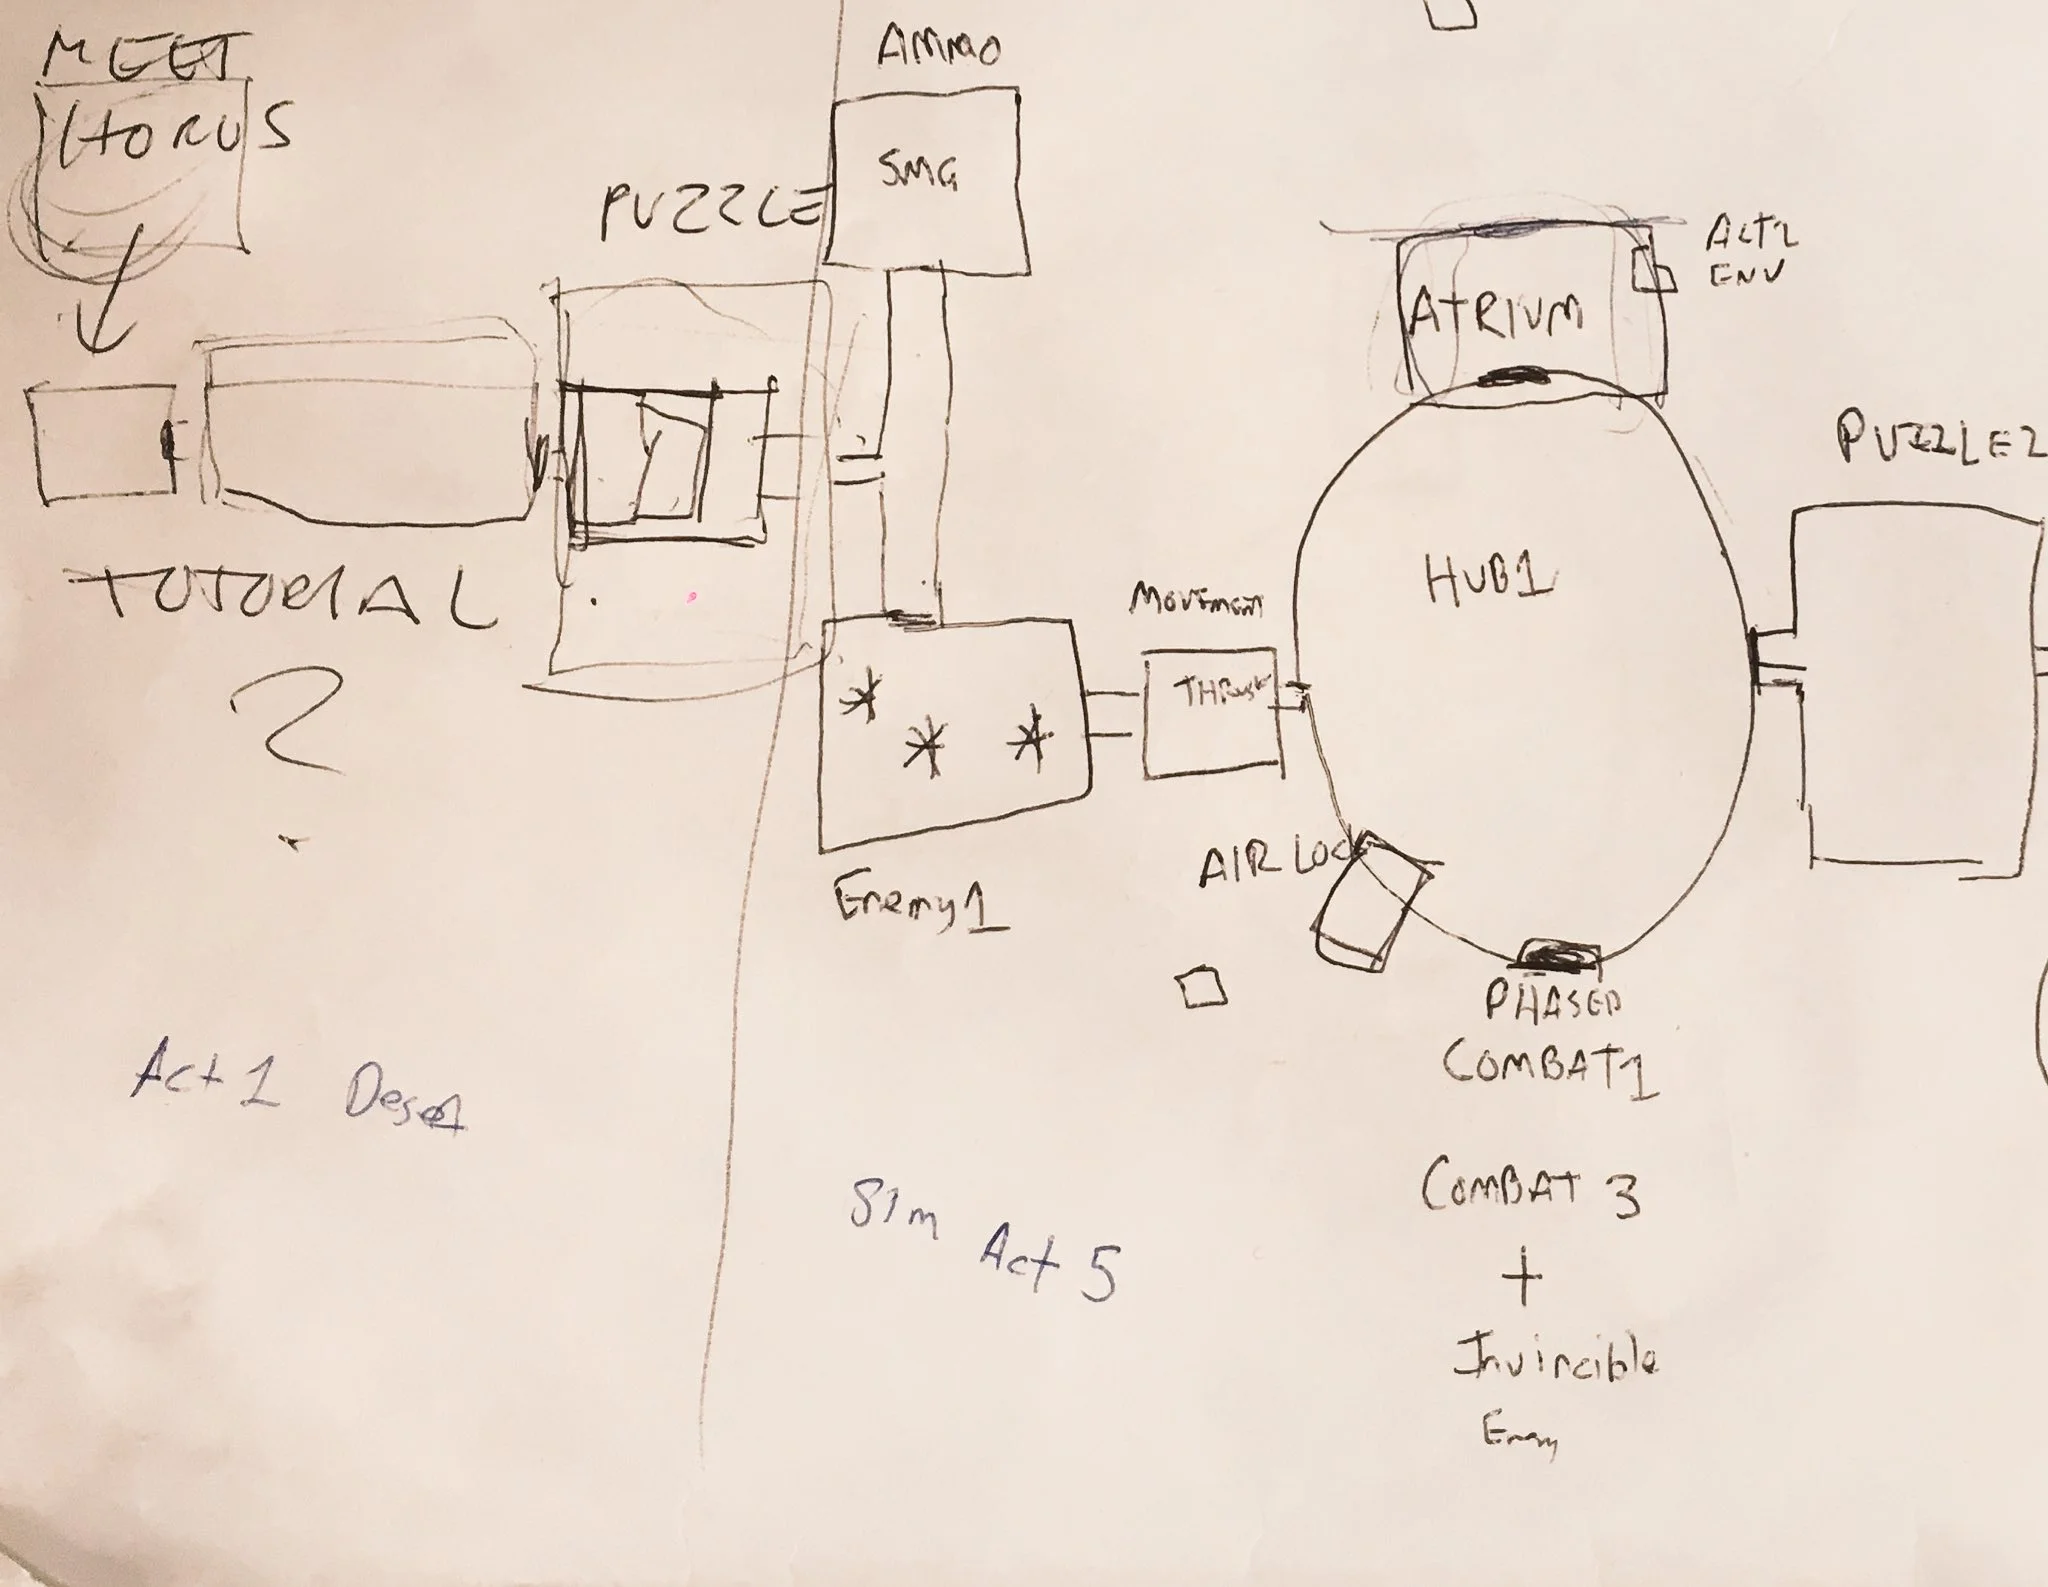 MEET
HORUS
TUTORIAL
?
PUZZLE
AMMO
SMG
Enemy1
MOVEMENT
THRUST
HUB1
ATRIUM
ACT2
ENV
PUZZLE2
AIR LOCK
PHASED
COMBAT1
COMBAT 3
+
Invincible
Enemy
Act 1
SIm Act 5